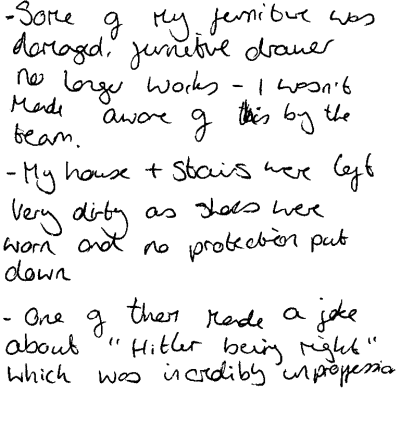 -Some of my furniture was
damaged. furniture drawer
no longer works - I wasn't
made aware of this by the
team.
- My house + stairs were left
very dirty as shoes were
worn and no protection put
down
- One of them made a joke
about "Hitler being right"
which was incredibly unprofessio